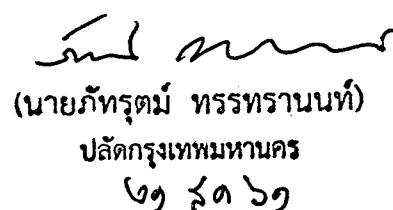 (นายภัทรุตม์ ทรรทรานนท์)
ปลัดกรุงเทพมหานคร
๒๑ สค ๖๑